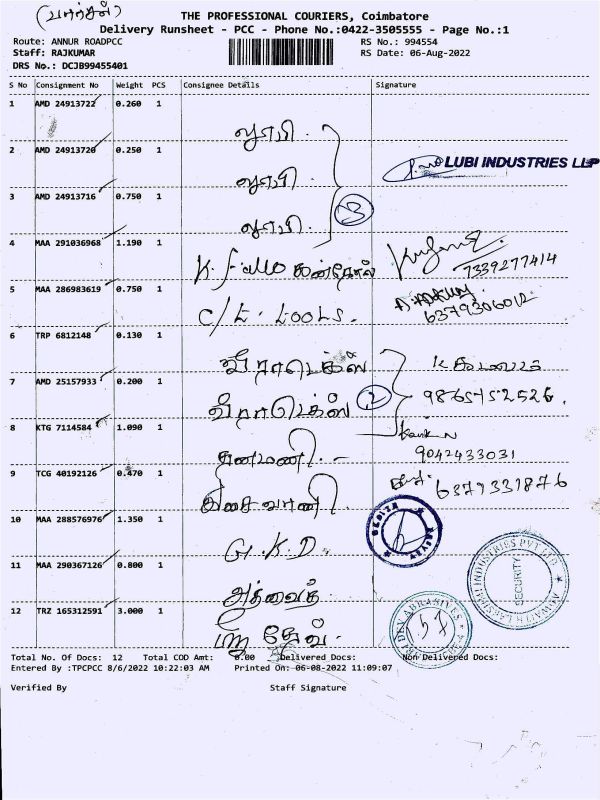 THE PROFESSIONAL COURIERS, Coimbatore
Delivery Runsheet - PCC - Phone No.:0422-3505555 - Page No.:1
Route: ANNUR ROADPCC RS No.: 994554
Staff: RAJKUMAR RS Date: 06-Aug-2022
DRS No.: DCJB99455401
S No Consignment No Weight PCS Consignee Details Signature
1 AMD 24913722 0.260 1 லூபி
2 AMD 24913720 0.250 1 லூபி LUBI INDUSTRIES LLP
3 AMD 24913716 0.750 1 லூபி 3
4 MAA 291036968 1.190 1 7339277414
5 MAA 286983619 0.750 1 C/E. TOOLS. 6379306012
6 TRP 6812148 0.130 1 வீராடெக்ஸ்
7 AMD 25157933 0.200 1 வீராடெக்ஸ் 2 9865452526
8 KTG 7114584 1.090 1 9042433031
9 TCG 40192126 0.470 1 இசைவாணி 6379331876
10 MAA 288576976 1.350 1 G.K.D.
11 MAA 290367126 0.800 1 அத்வைத் SECURITY
12 TRZ 165312591 3.000 1 ஹரி தேவ். HARI DEV ABRASIVES
Total No. Of Docs: 12 Total COD Amt: 0.00 Delivered Docs: Non Delivered Docs:
Entered By :TPCPCC 8/6/2022 10:22:03 AM Printed On: 06-08-2022 11:09:07
Verified By Staff Signature